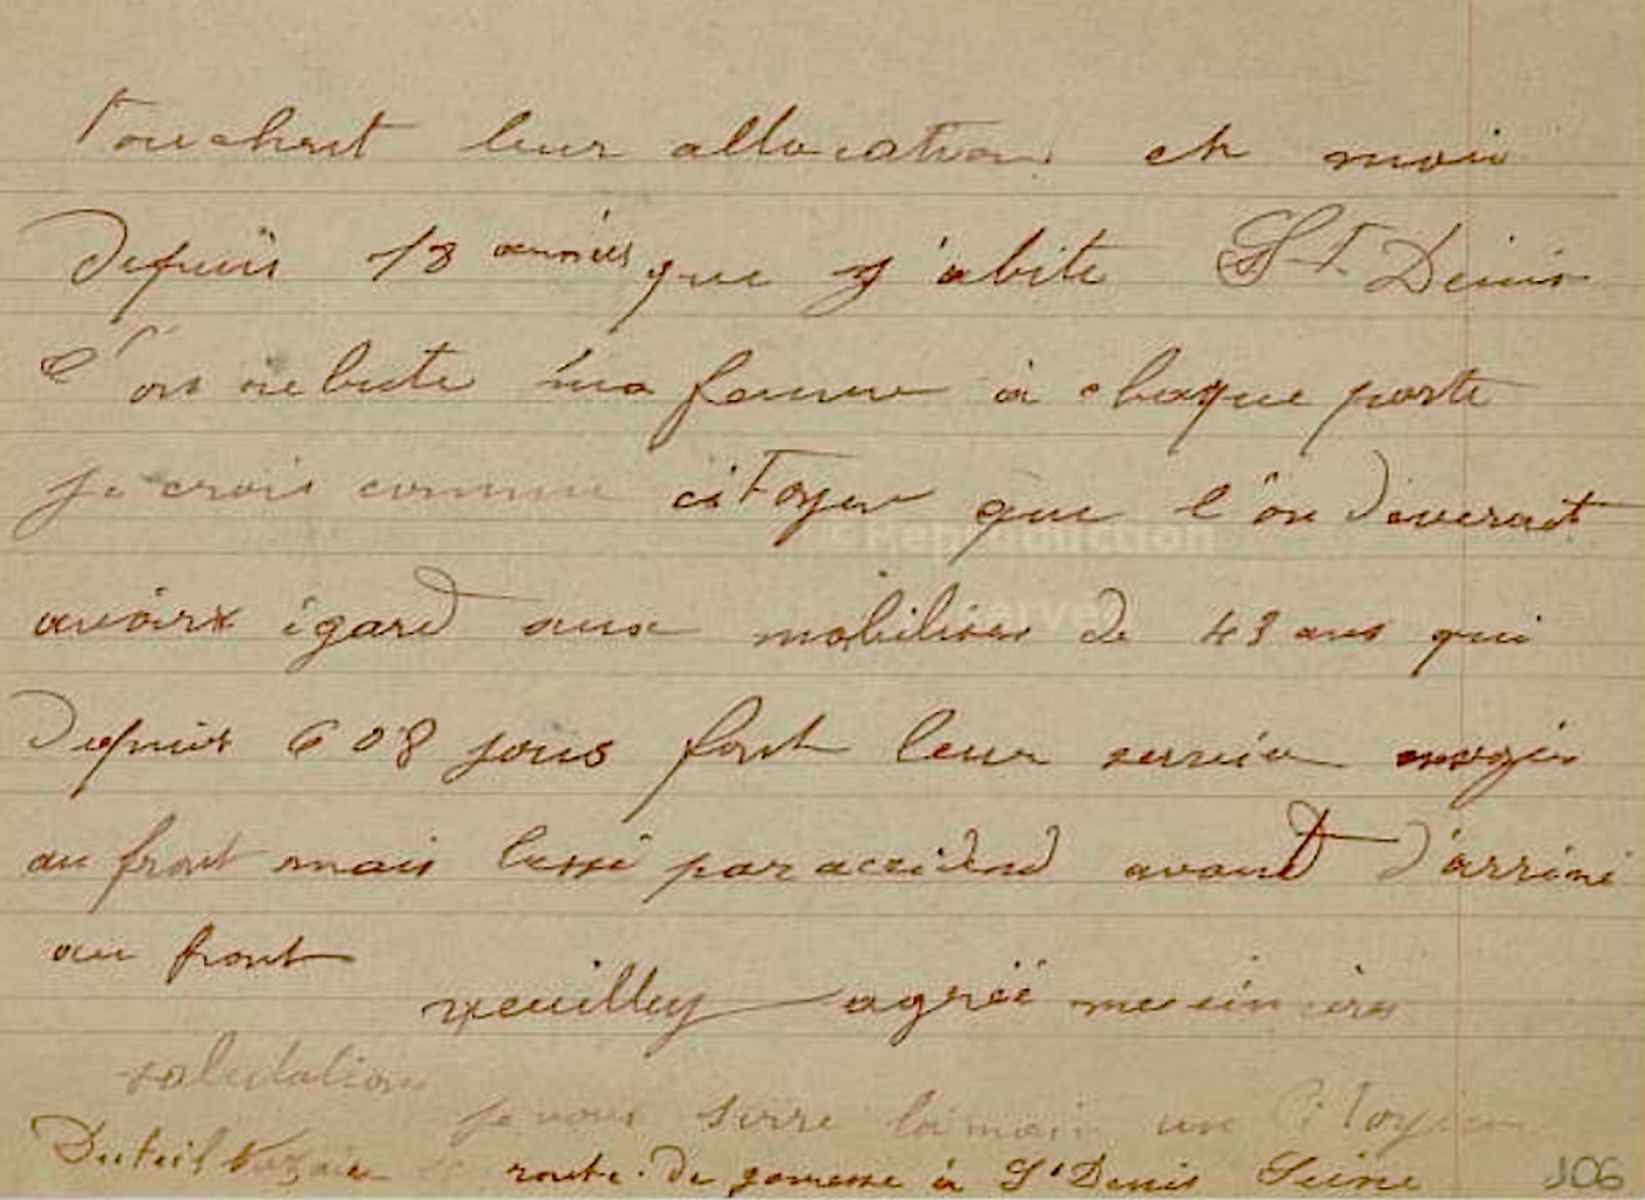 Touchent leur allocation et moi
Depuis 18 années que j'abite St Denis
l'on rebute ma femme à chaque porte
je crois comme citoyen que l'on deverait
avoir égard aux mobilisés de 43 ans qui
Depuis 608 jours font leur service
au front mais par accidend avant d'arrivé
au front
veuilley agréé
salutation
je vous serre la main un Citoyen
Duteil route de gonesse à St Denis Seine
106